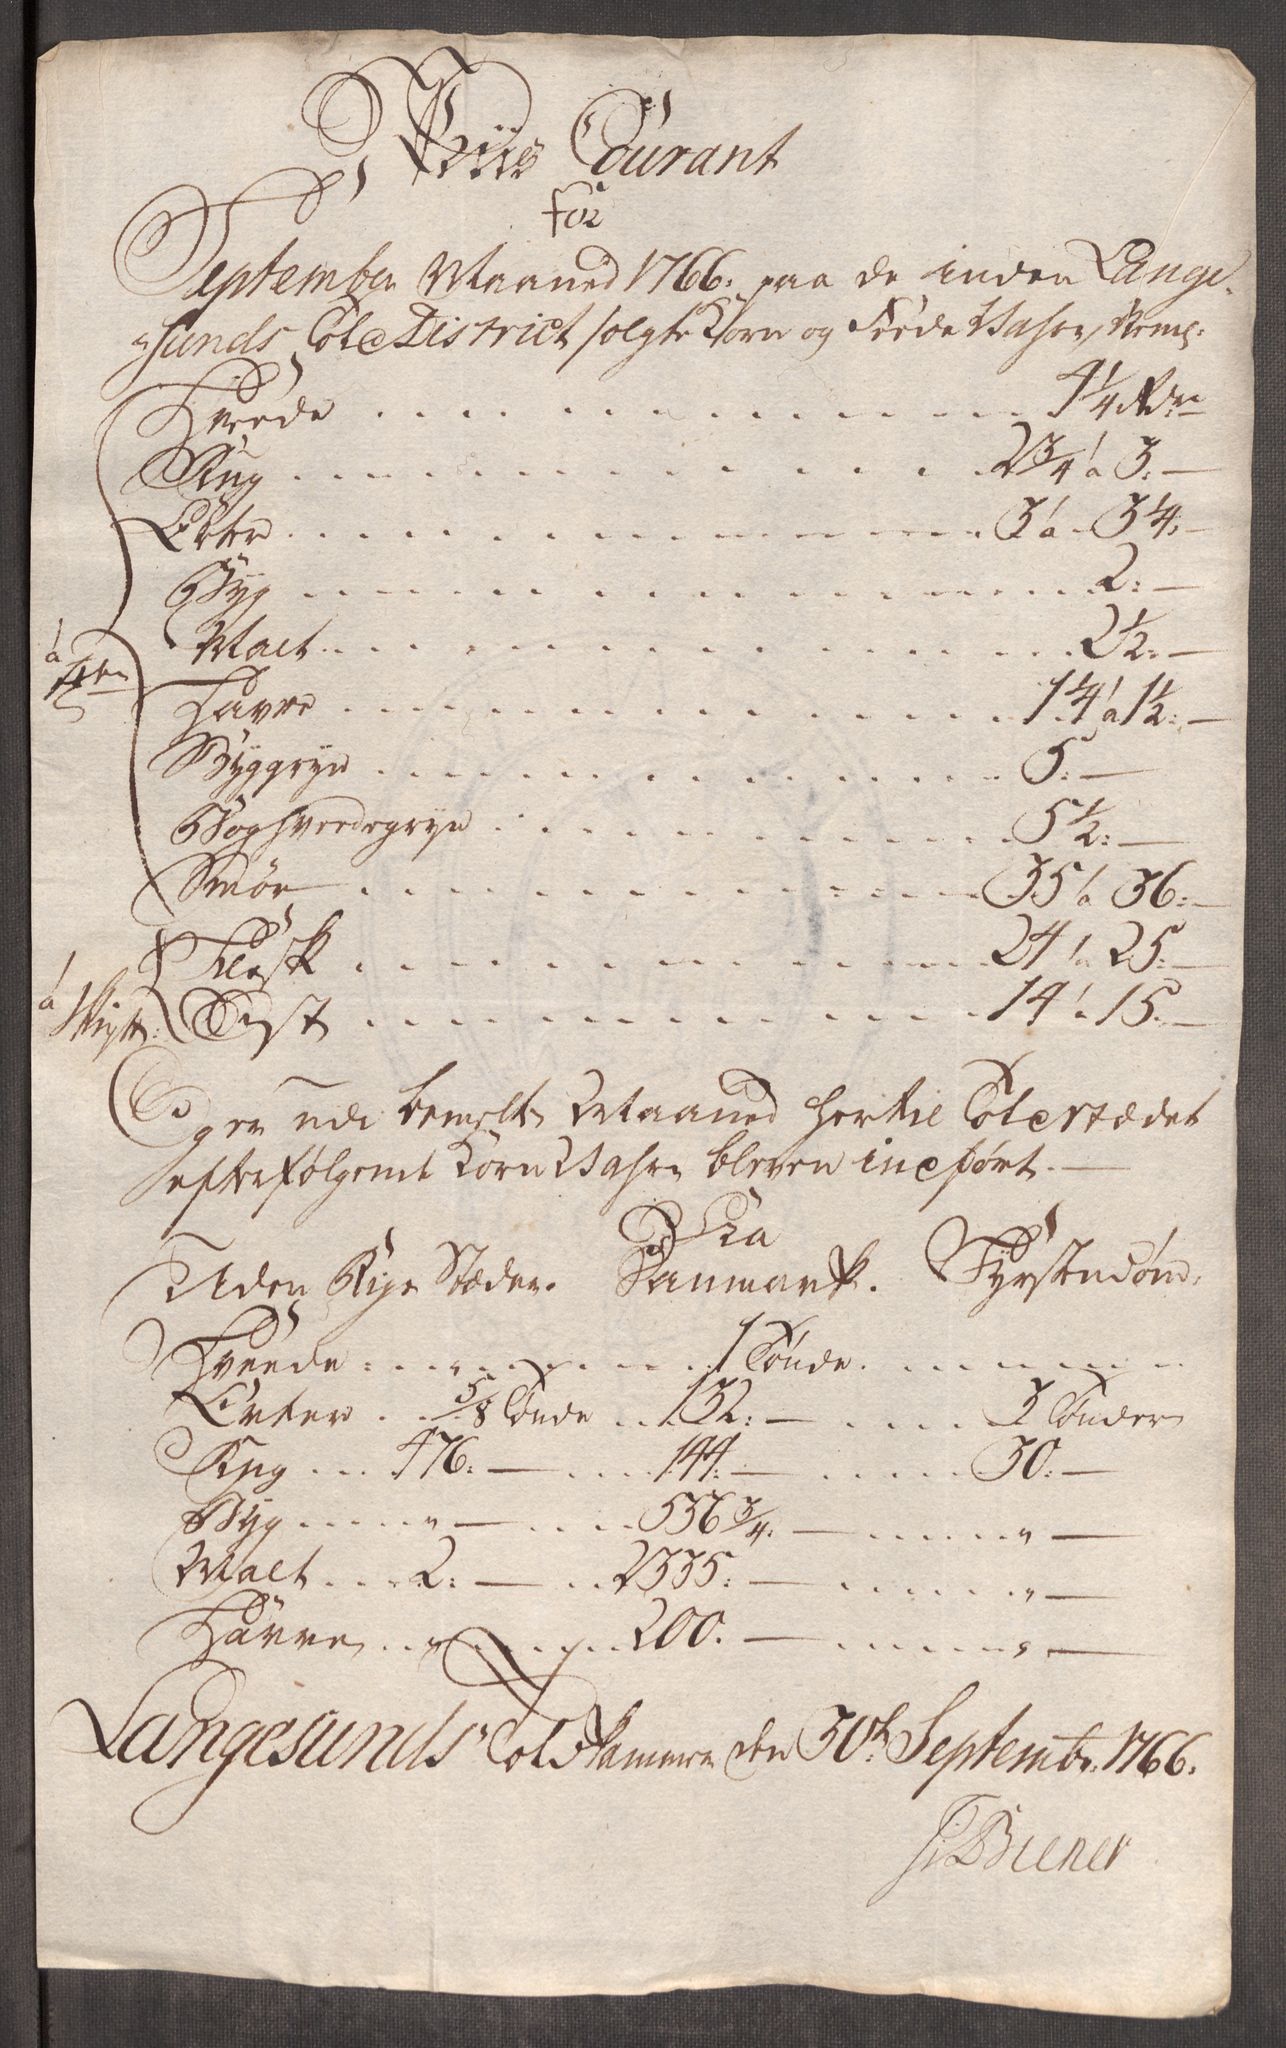 Priis Courant
for
September Maaned 1766. paa de inden Lange-
sunds Told District solgte Korn og Feede Wahre, Neml:
Hvede . . . 4 1/4 Rdr
Rug . . . 2 3/4 à 3: —
Erter . . . 3 à 3 1/4: —
Byg . . . 2: —
Malt . . . 2 1/2: —
à Tde
Havre . . . 1 1/4 à 1 1/2: —
Byggryn . . . 5: —
Boghveedegryn . . . 5 1/2: —
Smör . . . 35 à 36: —
Flesk . . . 24 à 25: —
à Skippd: Ost . . . 14 à 15: —
Og er udi bemelte Maaned her til Toldstædet
efterfølgende Korn Wahre bleven indført. —
Fra
Uden Rigs Stæder. Danmark. Fyrstendöm.
Hveede . . . „ . . . 1 Tönde . . .
Erter . . 5/8 Tönde . . 132: — . . . 3 Tönder
Rug . . . 476: — . . . 144: — . . . 30: —
Byg . . . „ — . . . 536 3/4: — . . . „ —
Malt . . . 2: — . . 2335: — . . . „ —
Havre . . „ . . . 200. — . . . „ —
Langesunds Told Kammer den 30th September: 1766.
J: Biener